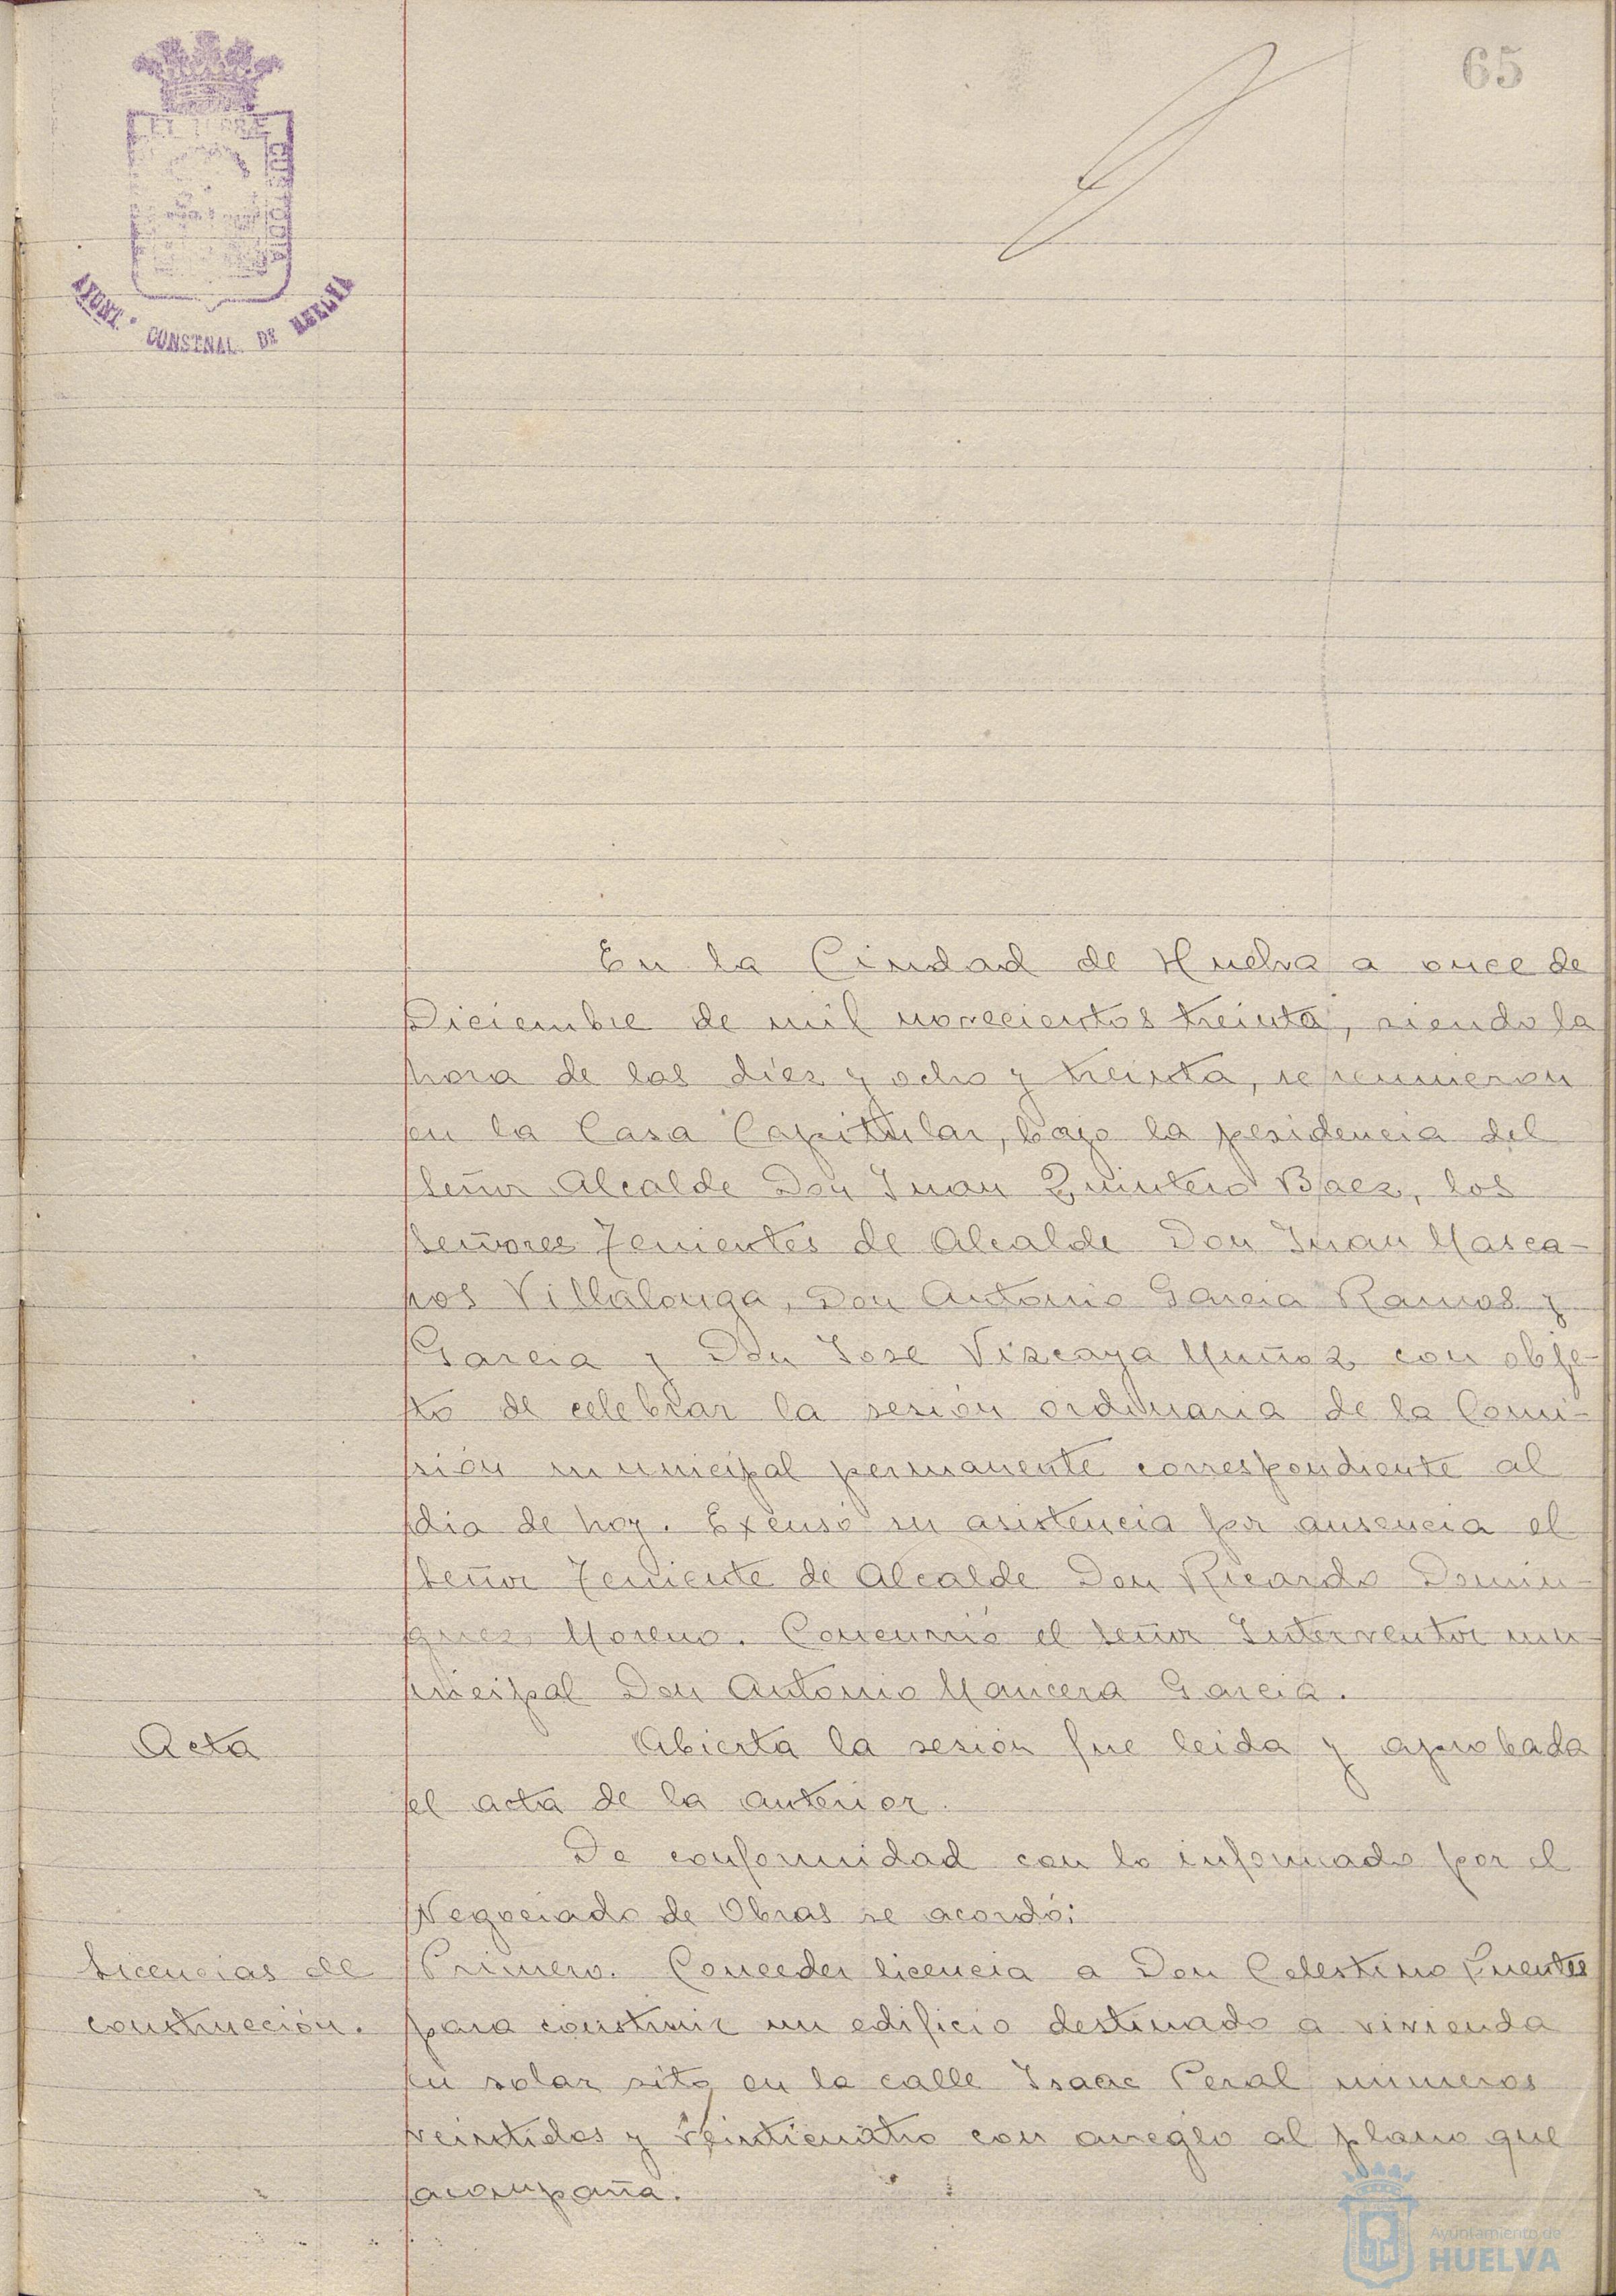 65
ET TERRÆ
CUSTODIA
AYUNT.º CONSTNAL. DE HUELVA
En la Ciudad de Huelva a once de
Diciembre de mil novecientos treinta, siendo la
hora de las diez y ocho y treinta, se reunieron
en la Casa Capitular, bajo la presidencia del
Señor Alcalde Don Juan Quintero Baez, los
Señores Tenientes de Alcalde Don Juan Masca-
ros Villalonga, Don Antonio Garcia Ramos y
Garcia y Don Jose Vizcaya Muñoz con obje-
to de celebrar la sesión ordinaria de la Comi-
sión municipal permanente correspondiente al
dia de hoy. Excusó su asistencia por ausencia el
Señor Teniente de Alcalde Don Ricardo Domin-
guez Moreno. Concurrió el Señor Interventor mu-
nicipal Don Antonio Mancera Garcia.
Acta
Abierta la sesión fue leida y aprobada
el acta de la anterior.
De conformidad con lo informado por el
Negociado de Obras se acordó:
Licencias de
construcción.
Primero. Conceder licencia a Don Celestino Fuentes
para construir un edificio destinado a vivienda
en solar sito en la calle Isaac Peral numeros
veintidos y veinticuatro con arreglo al plano que
acompaña.
Ayuntamiento de
HUELVA